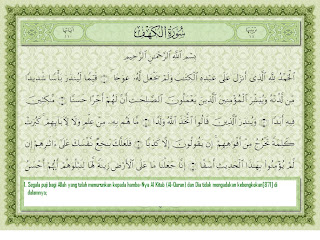 سُورَةُ الْكَهْفِ
بِسْمِ اللَّهِ الرَّحْمَٰنِ الرَّحِيمِ
الْحَمْدُ لِلَّهِ الَّذِي أَنزَلَ عَلَىٰ عَبْدِهِ الْكِتَابَ وَلَمْ يَجْعَل لَّهُ عِوَجًا ۝ قَيِّمًا لِّيُنذِرَ بَأْسًا شَدِيدًا
مِّن لَّدُنْهُ وَيُبَشِّرَ الْمُؤْمِنِينَ الَّذِينَ يَعْمَلُونَ الصَّالِحَاتِ أَنَّ لَهُمْ أَجْرًا حَسَنًا ۝ مَّاكِثِينَ
فِيهِ أَبَدًا ۝ وَيُنذِرَ الَّذِينَ قَالُوا اتَّخَذَ اللَّهُ وَلَدًا ۝ مَّا لَهُم بِهِ مِنْ عِلْمٍ وَلَا لِآبَائِهِمْ كَبُرَتْ
كَلِمَةً تَخْرُجُ مِنْ أَفْوَاهِهِمْ إِن يَقُولُونَ إِلَّا كَذِبًا ۝ فَلَعَلَّكَ بَاخِعٌ نَّفْسَكَ عَلَىٰ آثَارِهِمْ إِن
لَّمْ يُؤْمِنُوا بِهَٰذَا الْحَدِيثِ أَسَفًا ۝ إِنَّا جَعَلْنَا مَا عَلَى الْأَرْضِ زِينَةً لَّهَا لِنَبْلُوَهُمْ أَيُّهُمْ أَحْسَنُ
1. Segala puji bagi Allah yang telah menurunkan kepada hamba-Nya Al Kitab (Al-Quran) dan Dia tidak mengadakan kebengkokan[871] di
dalamnya;